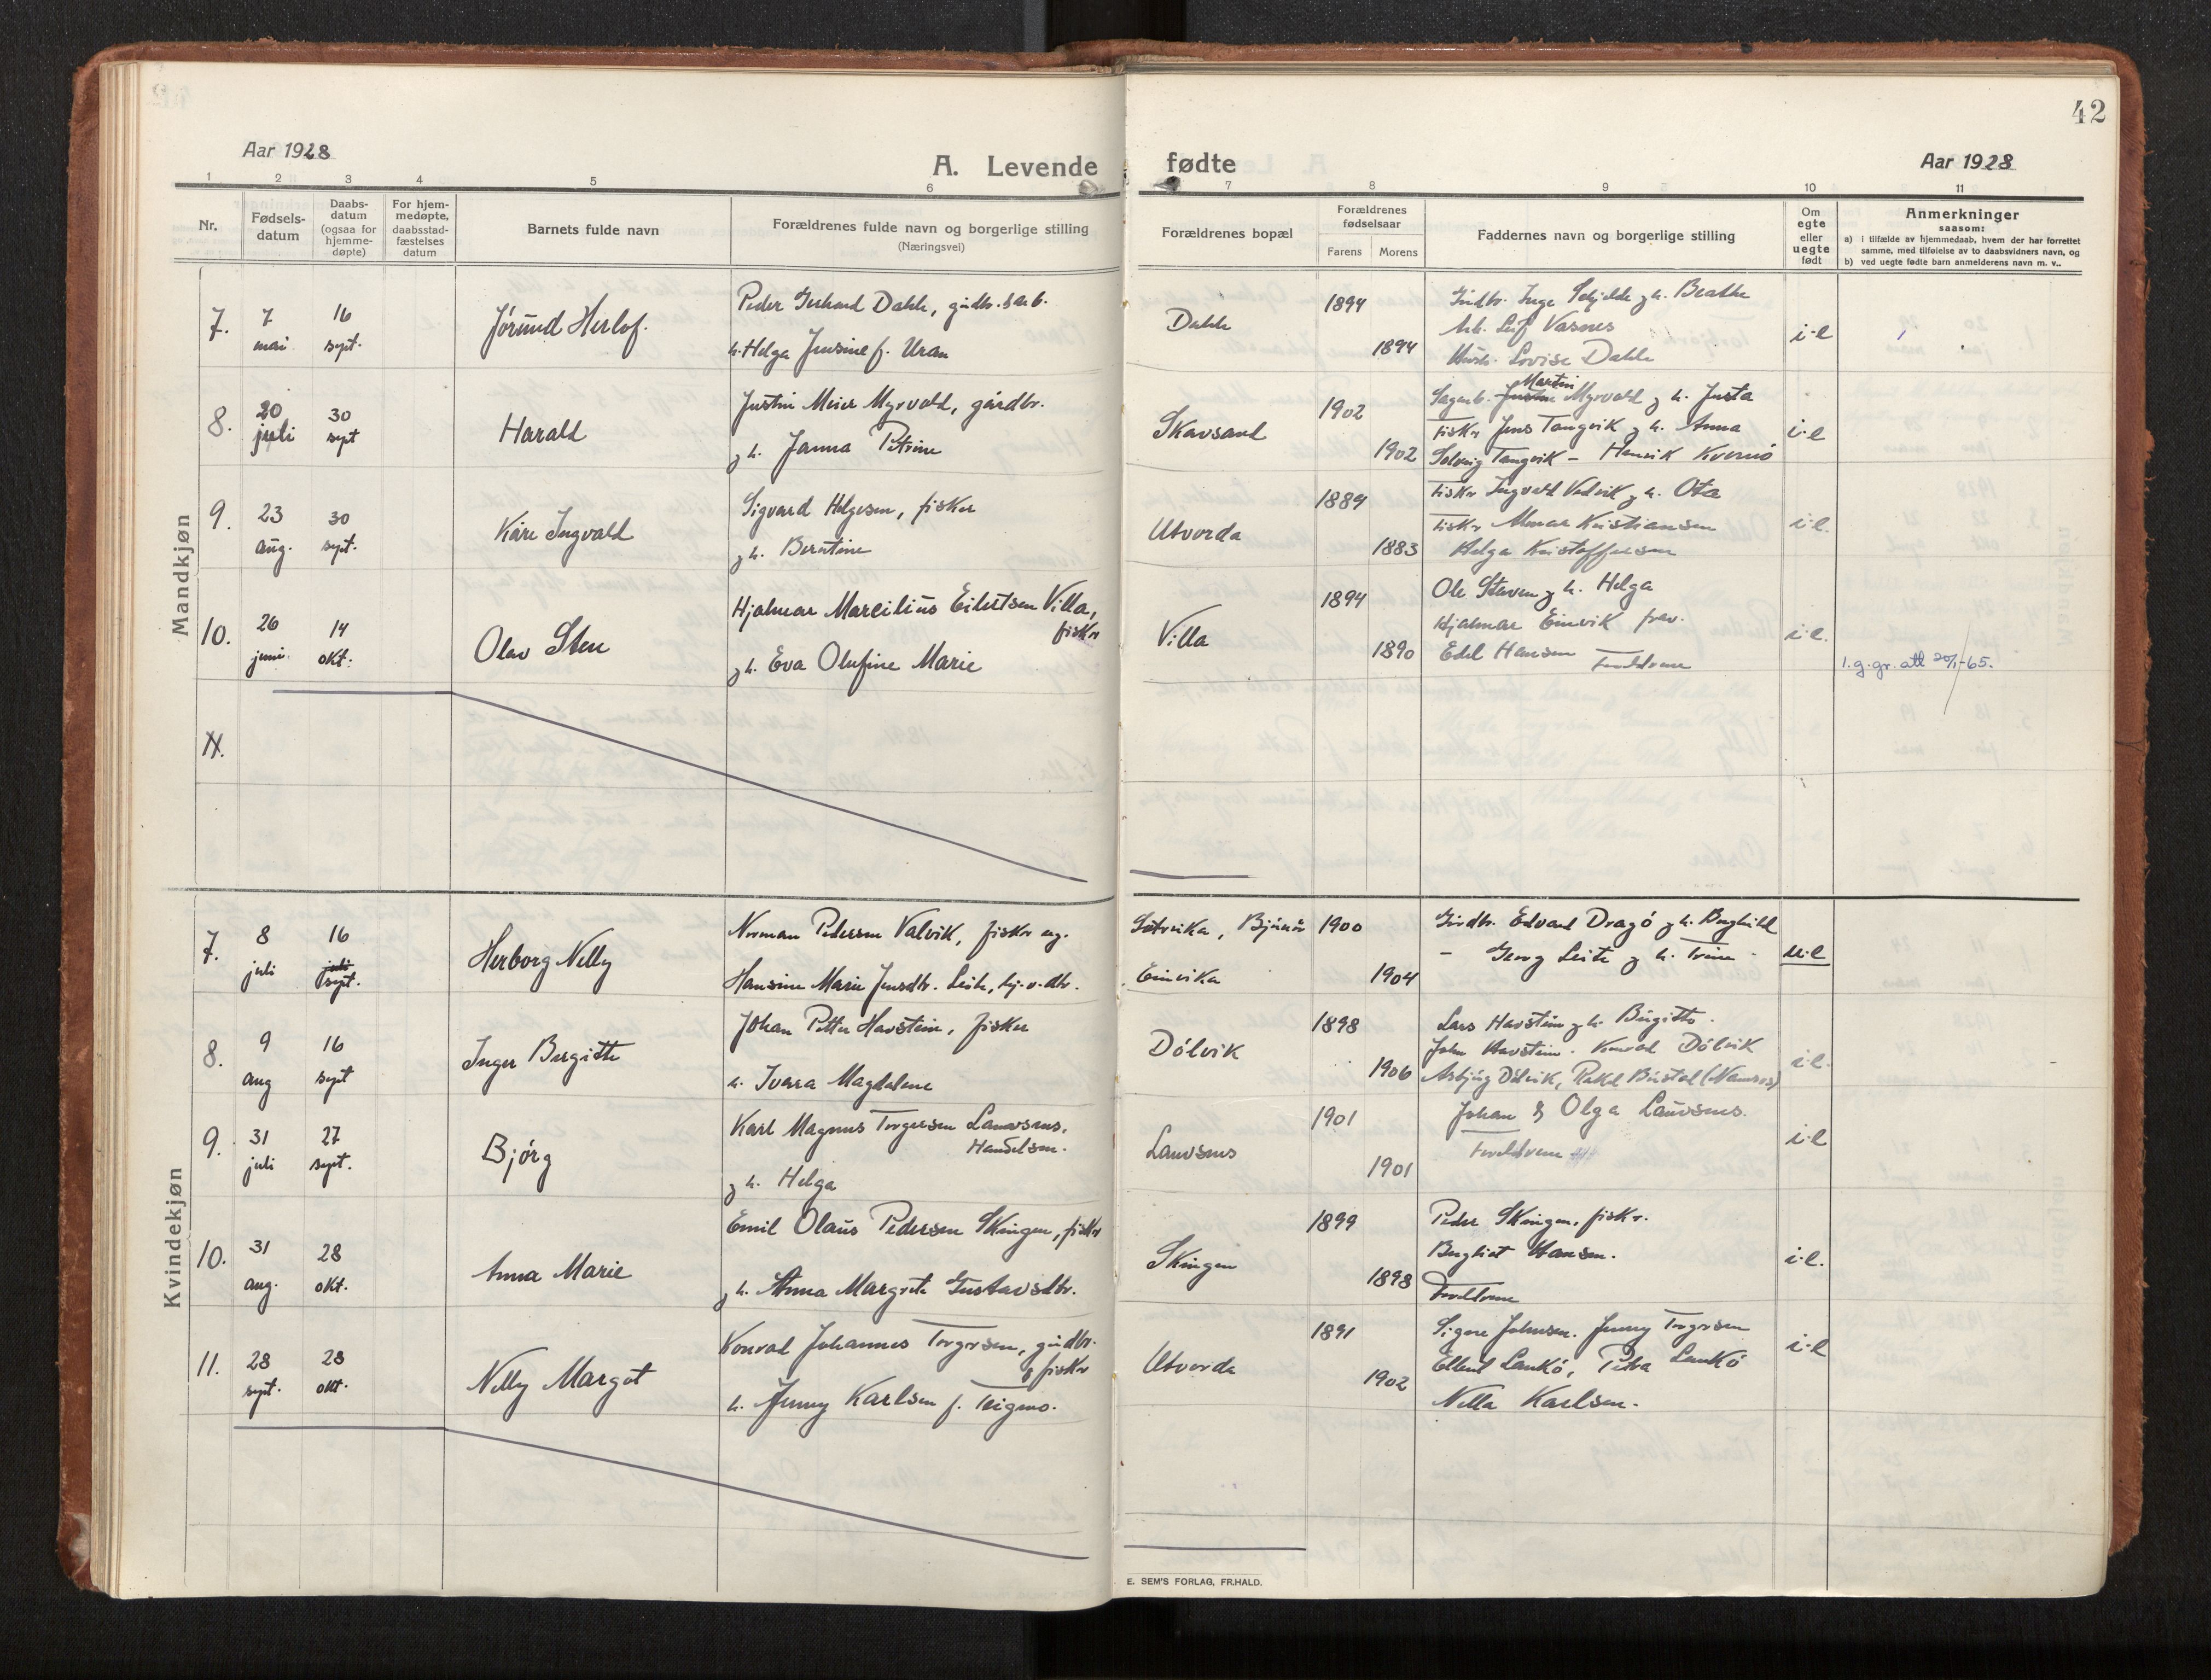 42
Aar 1928
A. Levende fødte
Aar 1928
1 2 3 4 5 6 7 8 9 10 11
Nr.
Fødsels-
datum
Daabs-
datum
(ogsaa for
hjemme-
døpte)
For hjem-
medøpte,
daabsstad-
fæstelses
datum
Barnets fulde navn
Forældrenes fulde navn og borgerlige stilling
(Næringsvei)
Forældrenes bopæl
Forældrenes
fødselsaar
Farens Morens
Faddernes navn og borgerlige stilling
Om
egte
eller
uegte
født
Anmerkninger
saasom:
a) i tilfælde av hjemmedaab, hvem der har forrettet
samme, med tilføielse av to daabsvidners navn, og
b) ved uegte fødte barn anmelderens navn m. v..
Mandkjøn
7. 7 mai 16 sept. Jørund Herlof.
Peder Gerhard Dahle, gårdbr.
h. Helga Jensine f. Uran
Dahle 1894 1894
Gårdbr. Inge h. Beathe
Leif Vasnes
Lovise Dahle
i-e
8. 20 juli 30 sept Harald
Justin Meier Myrvold, gårdbr.
g h. Janna Petrine
Skavsand 1902 1902
Martin Myrvold g h. Justa
Fisker Jens Tangvik g h. Anna
Solveig Tangvik - Henrik Kvernø
i-e
9. 23 aug. 30 sept. Kåre Ingvald
Sigvard Helgesen, fisker
g h. Berntine
Utvorda 1889 1883
Fisker Ingvald Vedvik g h. Ota
Fisker Almar Kristiansen
Helga Kristoffersen
i.e.
10. 26 juni. 14 okt. Olav Sten
Hjalmar Marcilius Eilertsen Villa,
fisker
g h. Eva Olufine Marie
Villa 1894 1890
Ole Staven g h. Helga
Hjalmar Einvik
Edel Hansen Foreldrene
i.e.
1. g. gr. att 20/1-65.
11.
Kvindekjøn
7. 8 juli 16 juli sept. Herborg Nelly
Norman Pedersen Valvik, fisker ug.
Hansine Marie Jensdtr. Leite,
Sætervika, Bjørør
Einvika
1900 1904
Gårdbr. Edvard Dragø g h. Borghild
- Georg Leite g h. Trine
u-e
8. 9 aug 16 sept Inger Bergitte
Johan Petter Havstein, fisker
h. Ivara Magdalene
Dølvik 1898 1906
Lars Havstein g h. Birgitte.
John Havstein. Konrad Dølvik
Asbjørg Dølvik, Rakel (Namsos)
i-e.
9. 31 juli 27 sept. Bjørg
Karl Magnus Torgersen Lauvsnes,
Handelsm.
g h. Helga
Lauvsnes 1901 1901
Johan & Olga Lauvsnes.
Foreldrene
i-e
10. 31 aug. 28 okt. Anna Marie
Emil Olaus Pedersen Skingen, fisker
g h. Anna Margrete Gustavsdtr.
Skingen 1899 1898
Peder Skingen, fisker.
Bergliot Hansen.
Foreldrene
i-e.
11. 28 sept. 28 okt. Nelly Margot
Konrad Johannes Torgersen, gårdbr.
& fisker
h. Jenny Karlsen f. Teigmo.
Utvorda 1891 1902
Signe Johnsen. Jenny Torgersen
Ellert Laukø, Petra Laukø
Nella Karlsen.
i-e
E. SEM'S FORLAG, FR.HALD.